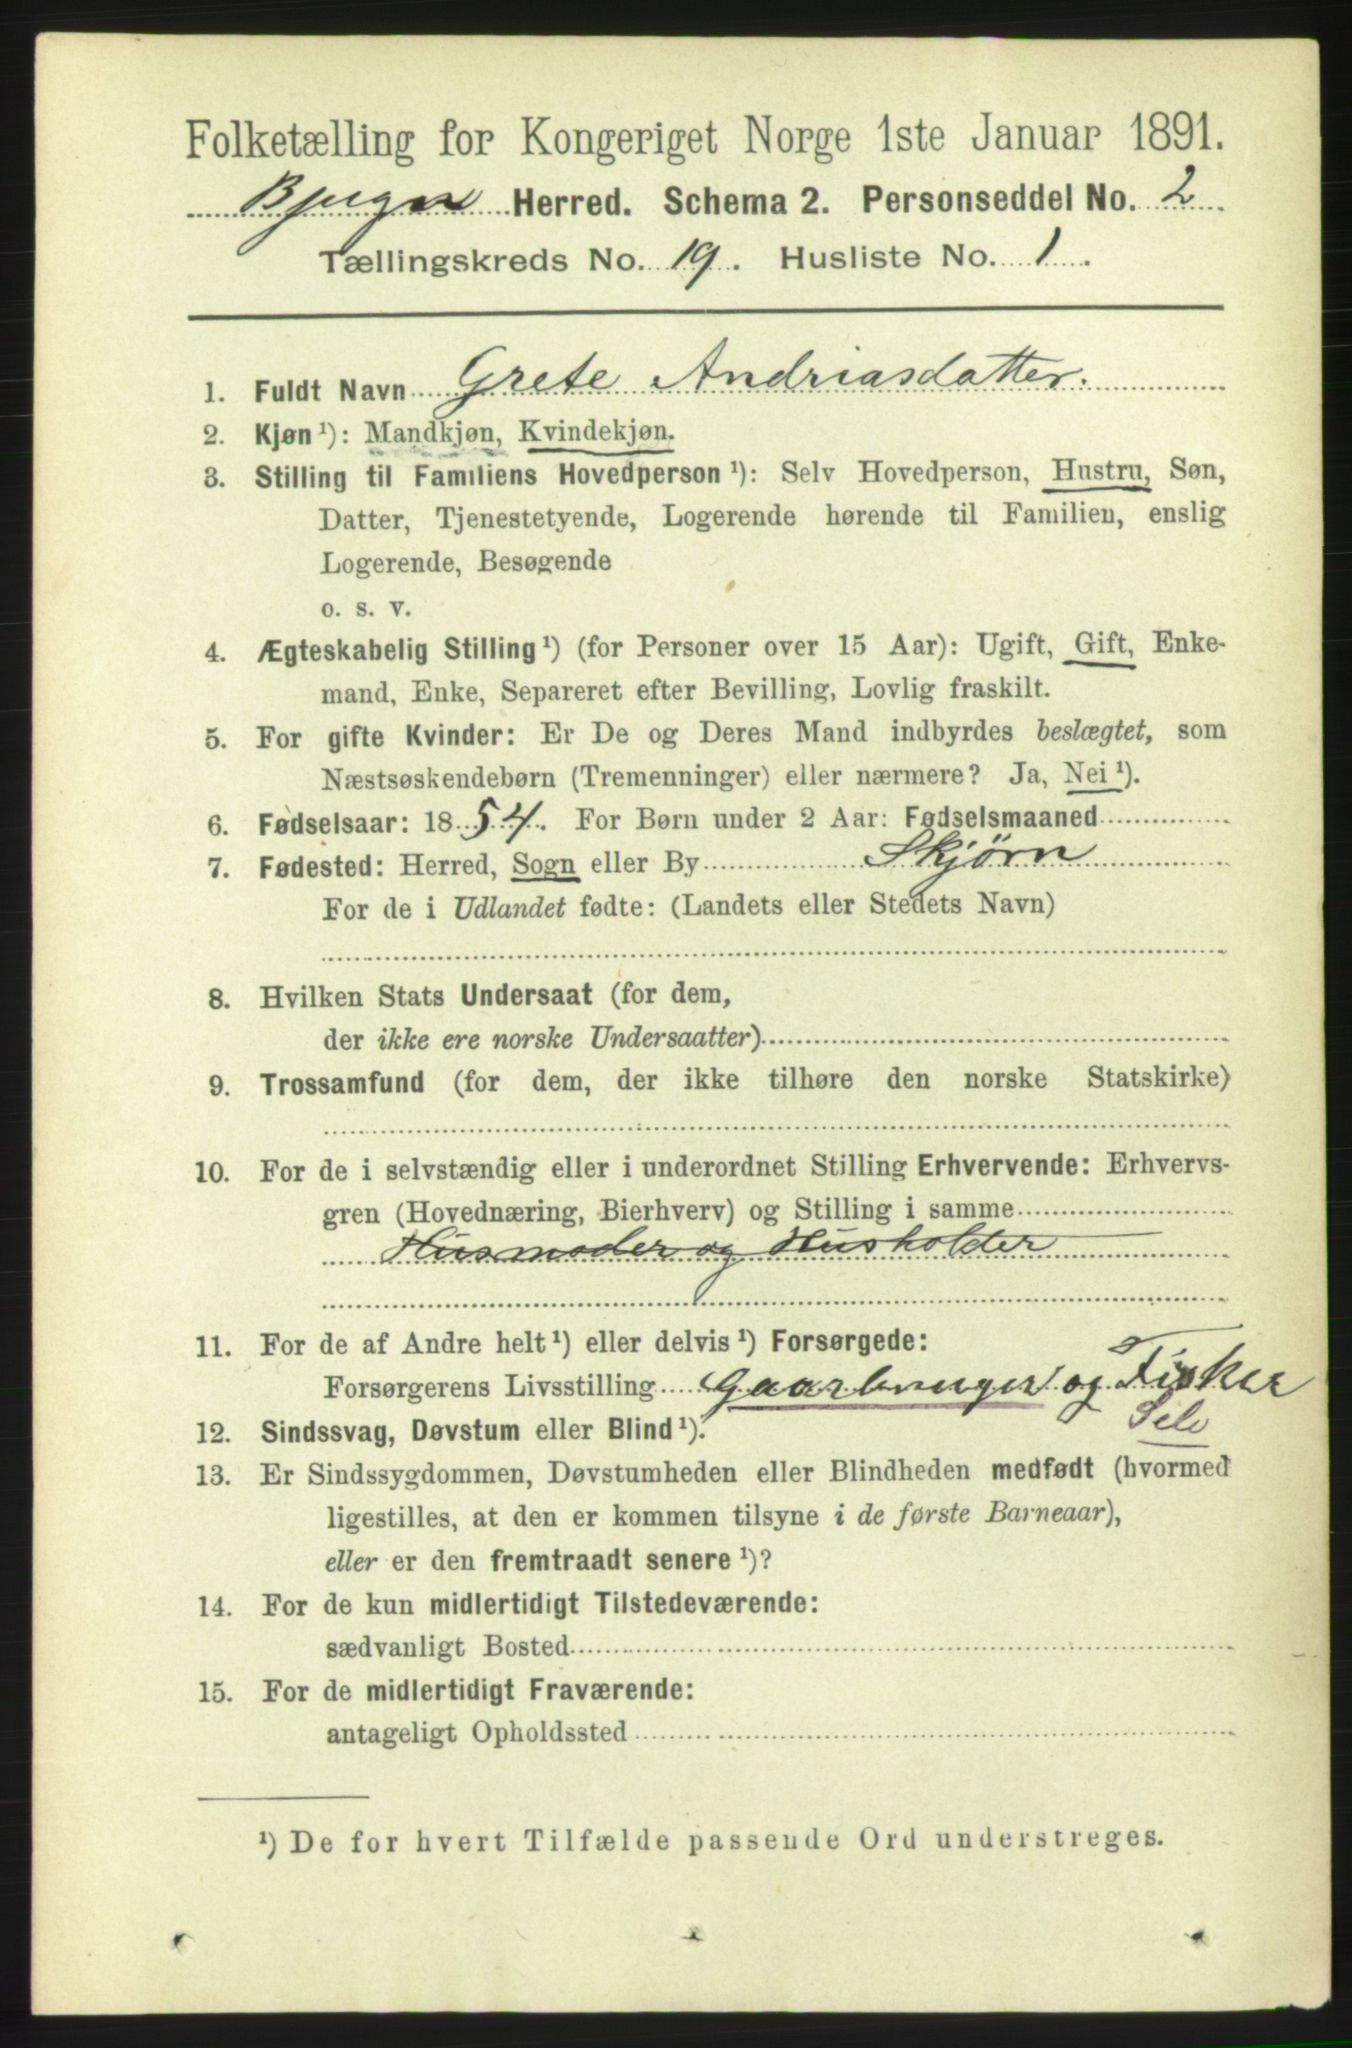 Folketælling for Kongeriget Norge 1ste Januar 1891.
Bjugn Herred. Schema 2. Personseddel No. 2
Tællingskreds No. 19. Husliste No. 1.
1. Fuldt Navn Grete Andriasdatter.
2. Kjøn ¹): Mandkjøn, Kvindekjøn.
3. Stilling til Familiens Hovedperson ¹): Selv Hovedperson, Hustru, Søn,
Datter, Tjenestetyende, Logerende hørende til Familien, enslig
Logerende, Besøgende
o. s. v.
4. Ægteskabelig Stilling ¹) (for Personer over 15 Aar): Ugift, Gift, Enke-
mand, Enke, Separeret efter Bevilling, Lovlig fraskilt.
5. For gifte Kvinder: Er De og Deres Mand indbyrdes beslægtet, som
Næstsøskendebørn (Tremenninger) eller nærmere? Ja, Nei ¹).
6. Fødselsaar: 1854. For Børn under 2 Aar: Fødselsmaaned
7. Fødested: Herred, Sogn eller By Skjørn
For de i Udlandet fødte: (Landets eller Stedets Navn)
8. Hvilken Stats Undersaat (for dem,
der ikke ere norske Undersaatter)
9. Trossamfund (for dem, der ikke tilhøre den norske Statskirke)
10. For de i selvstændig eller i underordnet Stilling Erhvervende: Erhvervs-
gren (Hovednæring, Bierhverv) og Stilling i samme
Husmoder og Husholder
11. For de af Andre helt ¹) eller delvis ¹) Forsørgede:
Forsørgerens Livsstilling Gaarbruger og Fisker
Selv
12. Sindssvag, Døvstum eller Blind ¹).
13. Er Sindssygdommen, Døvstumheden eller Blindheden medfødt (hvormed
ligestilles, at den er kommen tilsyne i de første Barneaar),
eller er den fremtraadt senere ¹)?
14. For de kun midlertidigt Tilstedeværende:
sædvanligt Bosted
15. For de midlertidigt Fraværende:
antageligt Opholdssted
¹) De for hvert Tilfælde passende Ord understreges.